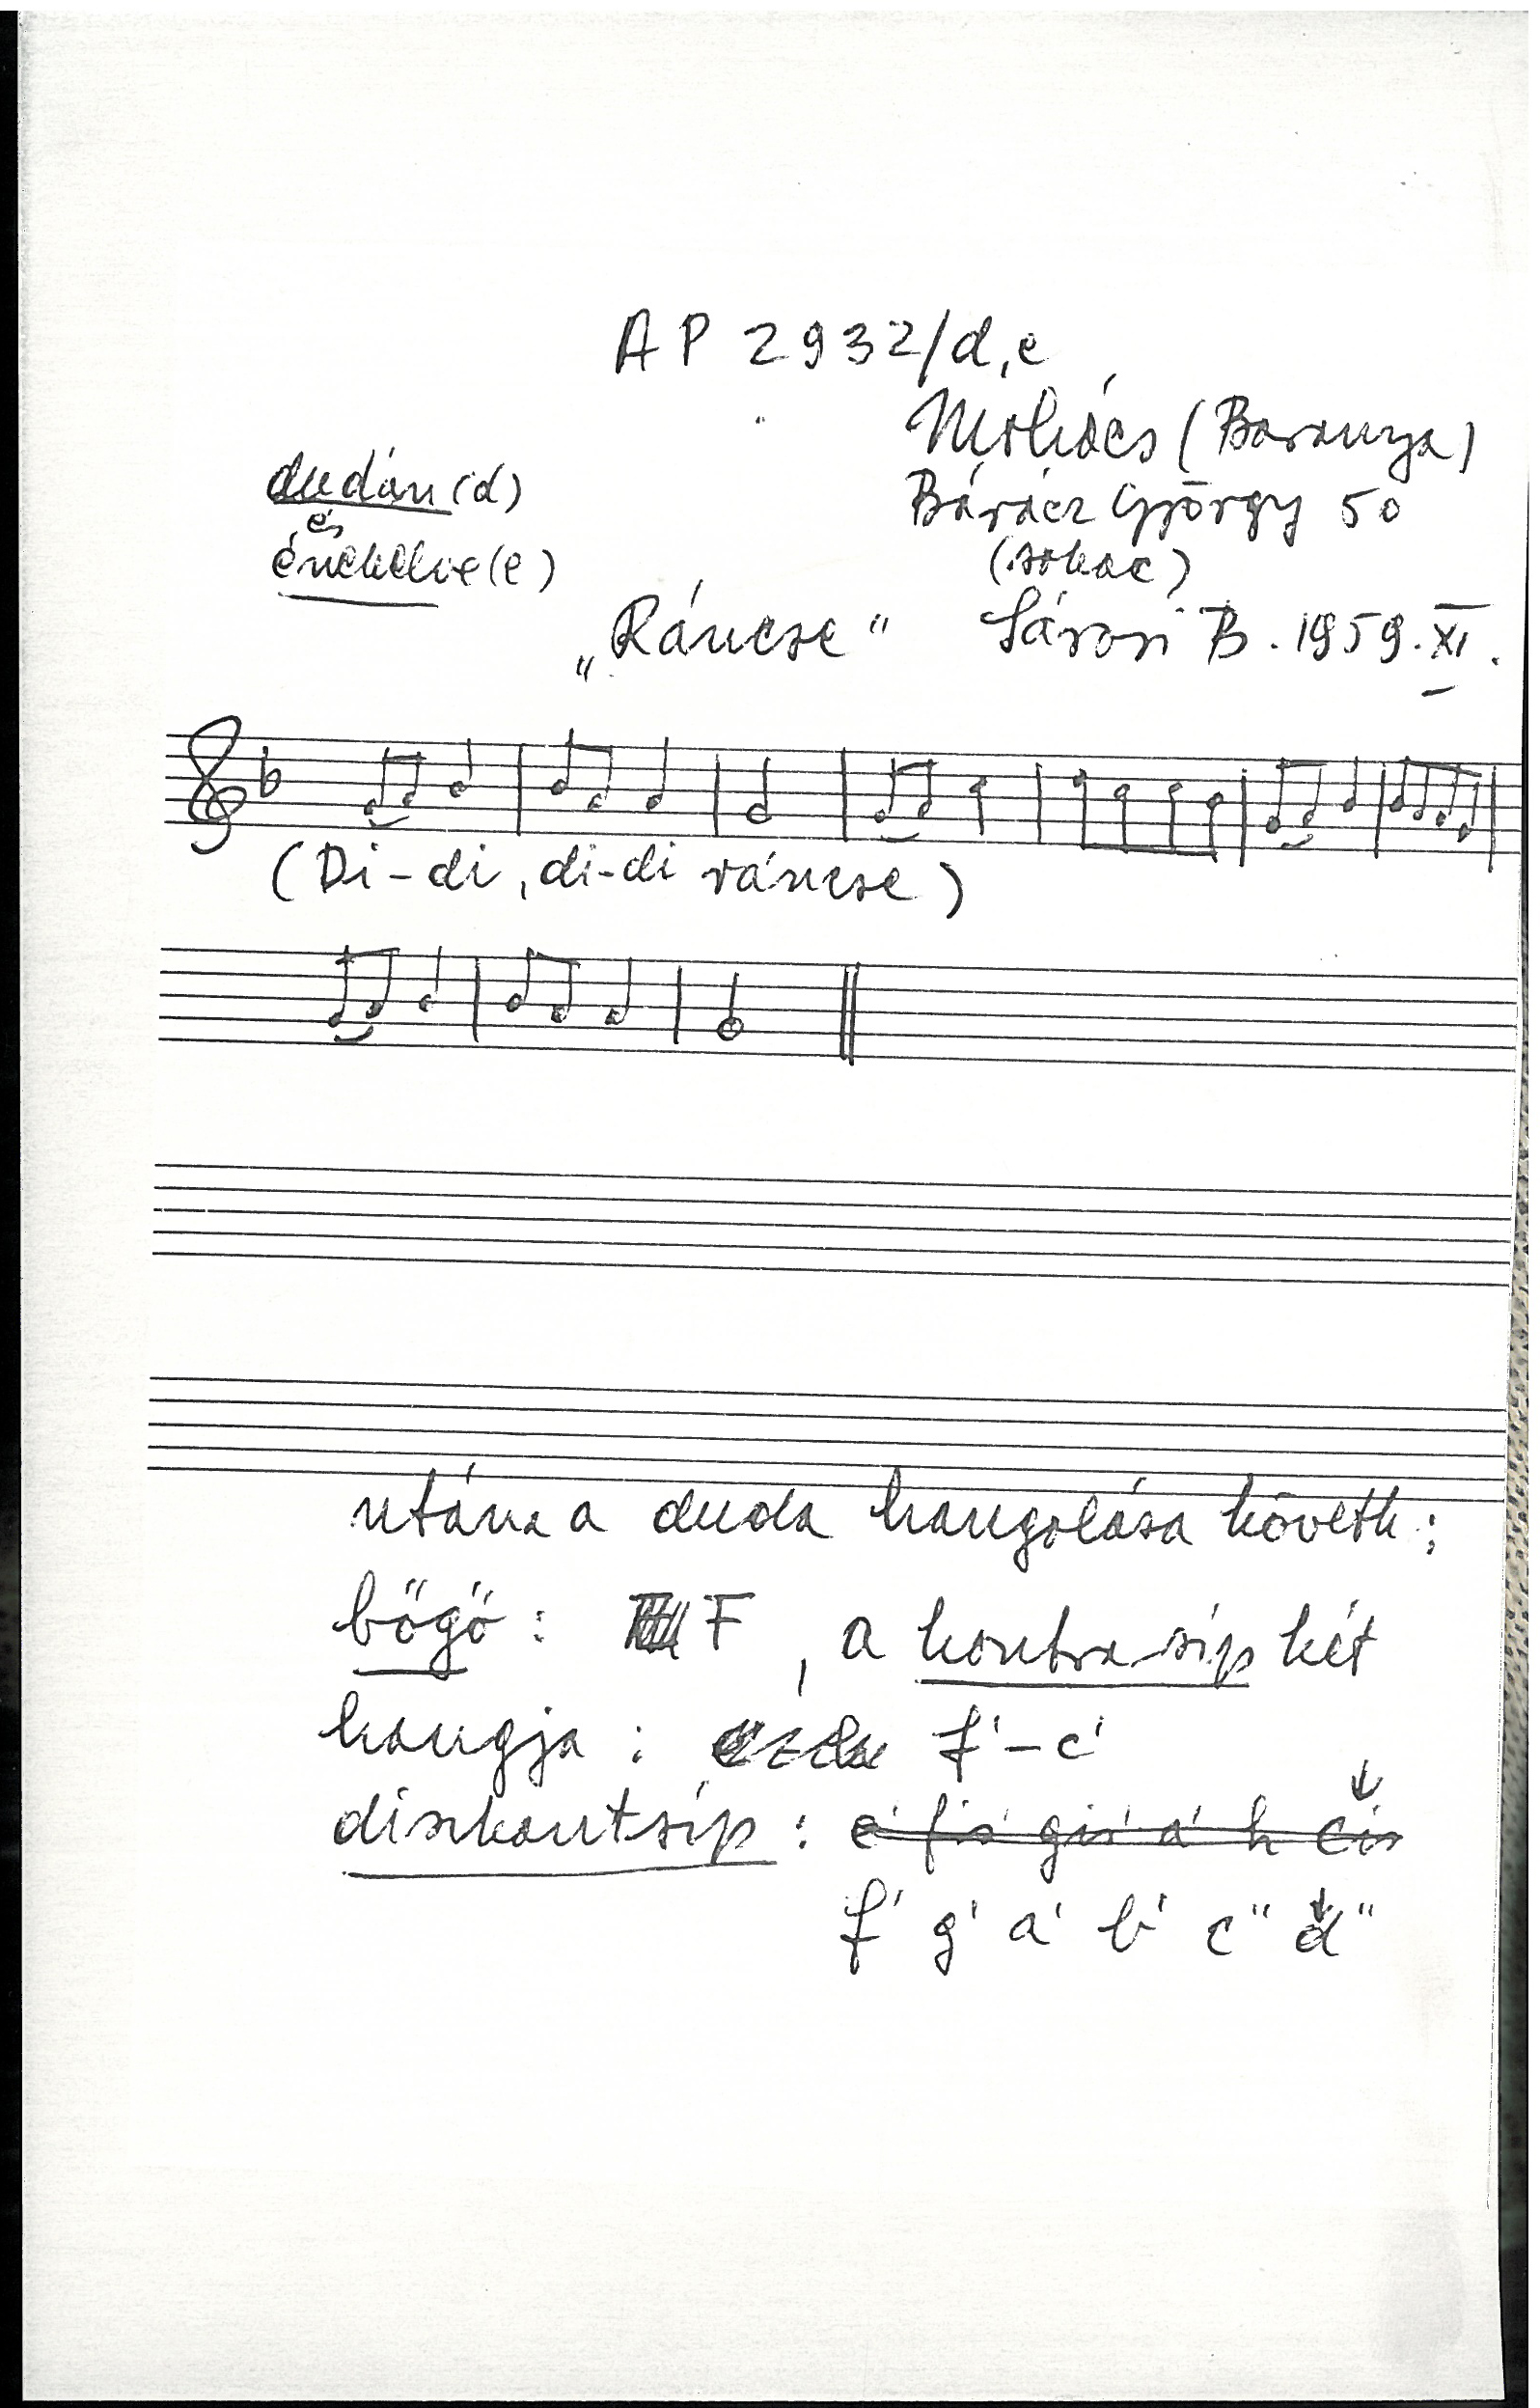 AP 2932/d,e
Mohács (Baranya)
dudán (d)
Bárácz György 50
és
énekelve (e)
(sokac)
„Ráncse" Sárosi B. 1959. XI.
(Di-di, di-di ráncse)
utána a duda hangolása követk:
bőgő: F, a kontrasíp két
hangja: f'-c'
diszkantsíp: e' fis' gis' a' h cis
f' g' a' b' c" d"